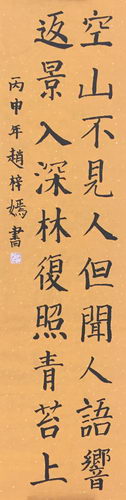 空山不見人但聞人語響
返景入深林復照青苔上
丙申年趙梓嫣書